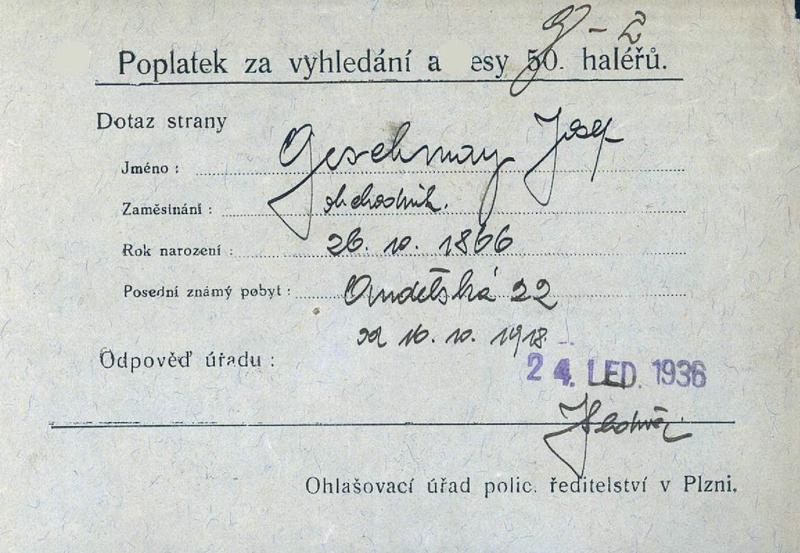 Poplatek za vyhledání a esy 50. haléřů.
Dotaz strany
Jméno : Geschmay Josef
Zaměsínání : obchodník.
Rok narození : 26. 10. 1866
Posední známý pobyt :
22
od 16. 10. 1918.
Odpověď úřadu :
24. LED. 1936
Ohlašovací úřad polic. ředitelství v Plzni.